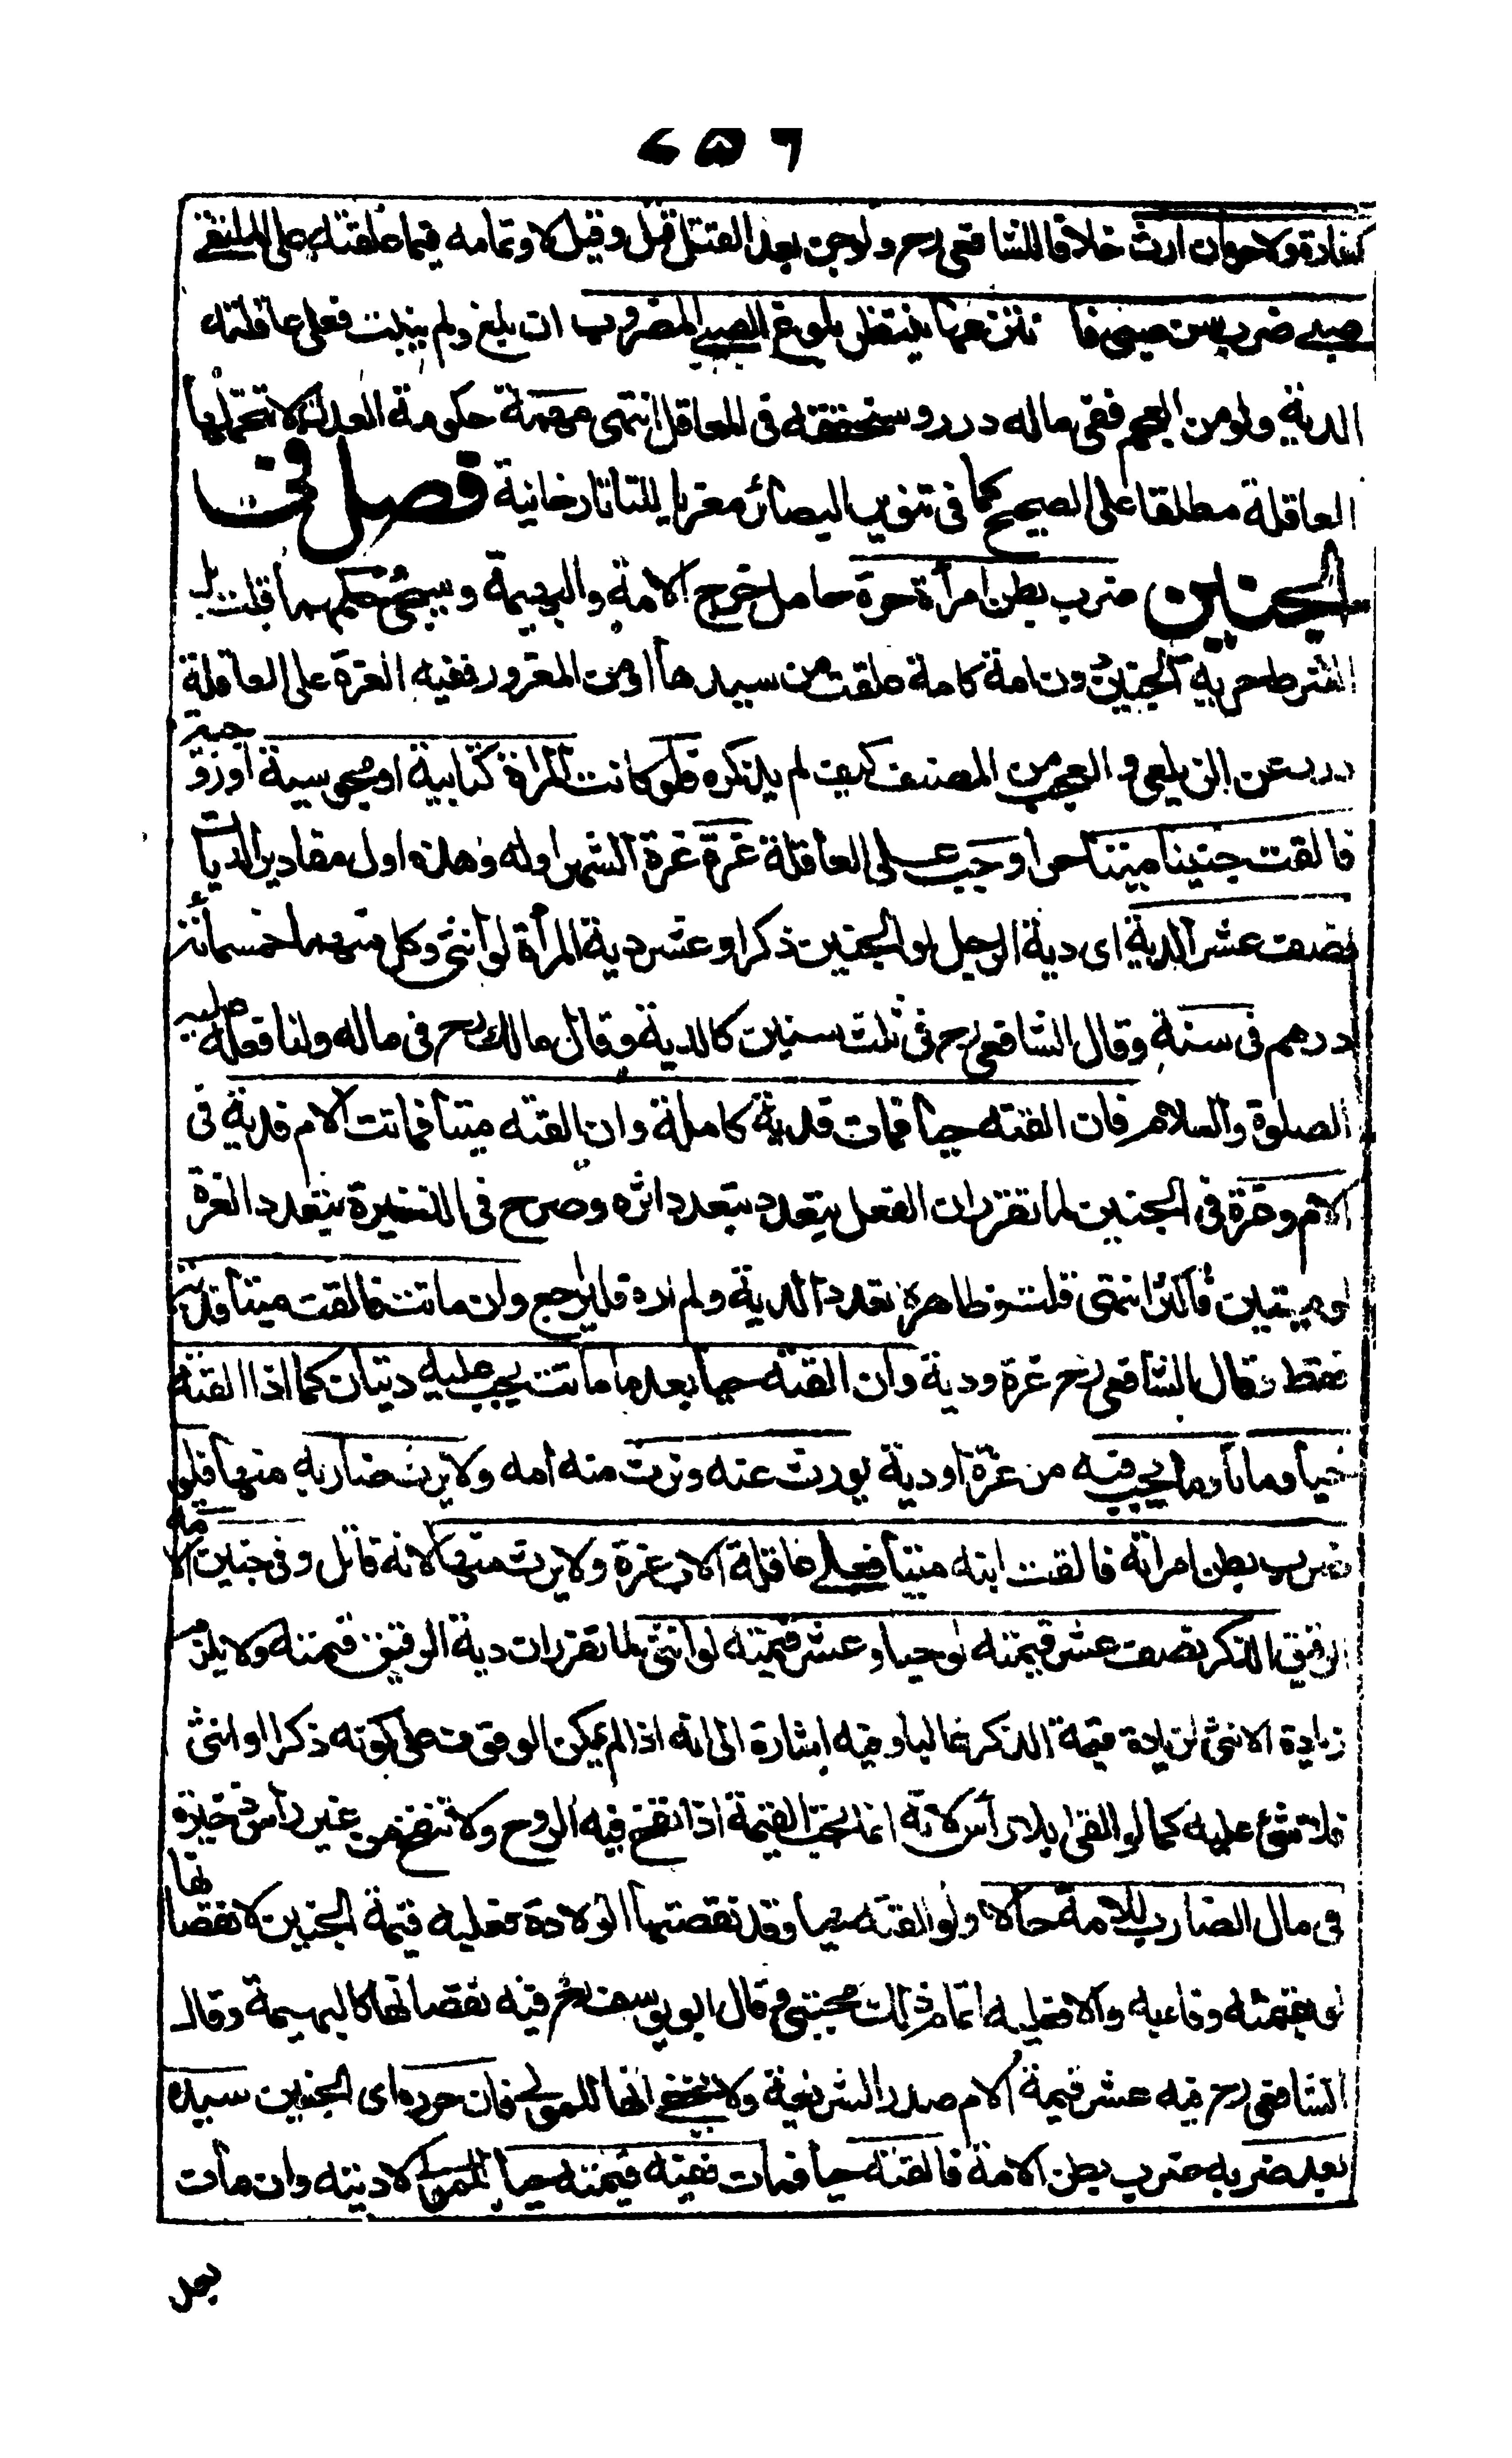 ٦٥٦
كفارة ولا حرمان ارث خلافا للشافعى رح ولو جن بعد القتل قيل وقيل لا وتمامه فيما علقته على الملتقى
صبى ضرب سن صبى فا نتزعها ينتظر بلوغ الصبى المضروب ان بلغ ولم ينبت فعلى عاقلته
الدية ولو من العجم ففى ماله درر وسنحققه فى المعاقل انتهى مهمة حكومة العدل لا تتحملها
العاقلة مطلقا على الصحيح كما فى تنوير البصائر معزيا للتاتارخانية فصل فى
الجنين ضرب بطن امرأة حرة حامل خرج الامة والبهيمة وسيجئ حكمهما قلت بل
الشرط حرية الجنين دون امه كامة علقت من سيدها او من المغرور ففيه الغرة على العاقلة
درر عن الزيلعى والعجب من المصنف كيف لم يذكره فلو كانت المرأة كتابية او مجوسية او زوجته
فالقت جنينا ميتا حرا وجب على العاقلة غرة غرة الشهر اوله وهذه اول مقادير الديات
نصف عشر الدية اى دية الرجل لو الجنين ذكرا وعشر دية المرأة لو انثى وكل منهما خمسمائة
درهم فى سنة وقال الشافعى رح فى ثلث سنين كالدية وقال مالك رح فى ماله ولنا فعله عليه
الصلوة والسلام فان القته حيا فمات فدية كاملة وان القته ميتا فماتت الام فدية فى
الام وغرة فى الجنين لما تقرر ان الفعل يتعدد بتعدد اثره وصرح فى الذخيرة بتعدد الغرة
لو ميتين فاكثر انتهى قلت وظاهره تعدد الدية ولم اره فليراجع وان ماتت فالقت ميتا فدية
فقط وقال الشافعى رح غرة ودية وان القته حيا بعد ما ماتت يجب عليه ديتان كما اذا القته
حيا وماتا وما يجب فيه من غرة او دية يورث عنه وترث منه امه ولا يرث ضاربه منها فلو
ضرب بطن امرأته فالقت ابنه ميتا فعلى عاقلة الاب غرة ولا يرث منها لانه قاتل وفى جنين الامة
الرقيق الذكر نصف عشر قيمته لو حيا وعشر قيمته لو انثى لما تقرر ان دية الرقيق قيمته ولا يلزم
زيادة الانثى لزيادة قيمة الذكر غالبا وفيه اشارة الى انه اذا لم يمكن الوقوف على كونه ذكرا او انثى
فلا شئ عليه كما لو القى بلا رأس لانه انما تجب القيمة اذا نفخ فيه الروح ولا تنفخ من غير رأس ذخيرة
فى مال الضارب للامة حالا ولو القته حيا وقد نقصتها الولادة فعليه قيمة الجنين لا نقصانها
لو بقيمته وفاء به والا فعليه اتمام ذلك مجتبى وقال ابو يوسف رح فيه نقصانها كالبهيمة وقال
الشافعى رح فيه عشر قيمة الام صدر الشريعة ولا يخفى انها للمولى فان حرره اى الجنين سيده
بعد ضربه ضرب بطن الامة فالقته حيا فمات ففيه قيمته حيا للمولى لا ديته وان مات
بعد